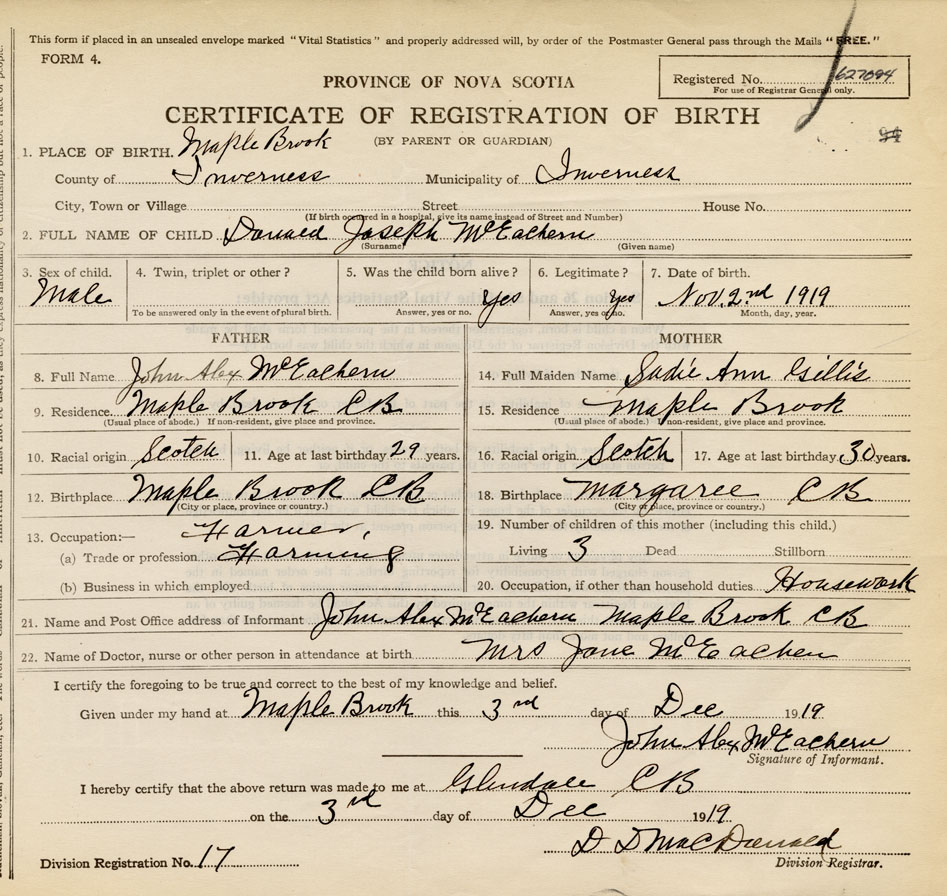 This form if placed in an unsealed envelope marked "Vital Statistics" and properly addressed will, by order of the Postmaster General pass through the Mails "FREE."
FORM 4.
Registered No. 627094
For use of Registrar General only.
PROVINCE OF NOVA SCOTIA
CERTIFICATE OF REGISTRATION OF BIRTH
(BY PARENT OR GUARDIAN)
1. PLACE OF BIRTH. Maple Brook
County of Inverness Municipality of Inverness
City, Town or Village Street House No.
(If birth occurred in a hospital, give its name instead of Street and Number)
2. FULL NAME OF CHILD Donald Joseph McEachern
(Surname) (Given name)
3. Sex of child. 4. Twin, triplet or other? 5. Was the child born alive? 6. Legitimate? 7. Date of birth.
Male Yes yes Nov. 2nd 1919
To be answered only in the event of plural birth. Answer, yes or no. Answer, yes or no. Month, day, year.
FATHER MOTHER
8. Full Name John Alex McEachern 14. Full Maiden Name Sadie Ann Gillis
9. Residence. Maple Brook CB 15. Residence Maple Brook
(Usual place of abode.) If non-resident, give place and province. (Usual place of abode.) If non-resident, give place and province.
10. Racial origin Scotch 11. Age at last birthday 29 years. 16. Racial origin Scotch 17. Age at last birthday. 30 years.
12. Birthplace Maple Brook CB 18. Birthplace Margaree CB
(City or place, province or country.) (City or place, province or country.)
13. Occupation:— Farmer, 19. Number of children of this mother (including this child.)
(a) Trade or profession Farming Living 3 Dead Stillborn
(b) Business in which employed 20. Occupation, if other than household duties. Housework
21. Name and Post Office address of Informant John Alex McEachern Maple Brook CB
22. Name of Doctor, nurse or other person in attendance at birth Mrs Jane McEachen
I certify the foregoing to be true and correct to the best of my knowledge and belief.
Given under my hand at Maple Brook this 3rd day of Dec 1919
John Alex McEachern
Signature of Informant.
I hereby certify that the above return was made to me at Glendale CB
on the 3rd day of Dec 1919
D D MacDonald
Division Registration No. 17 Division Registrar.